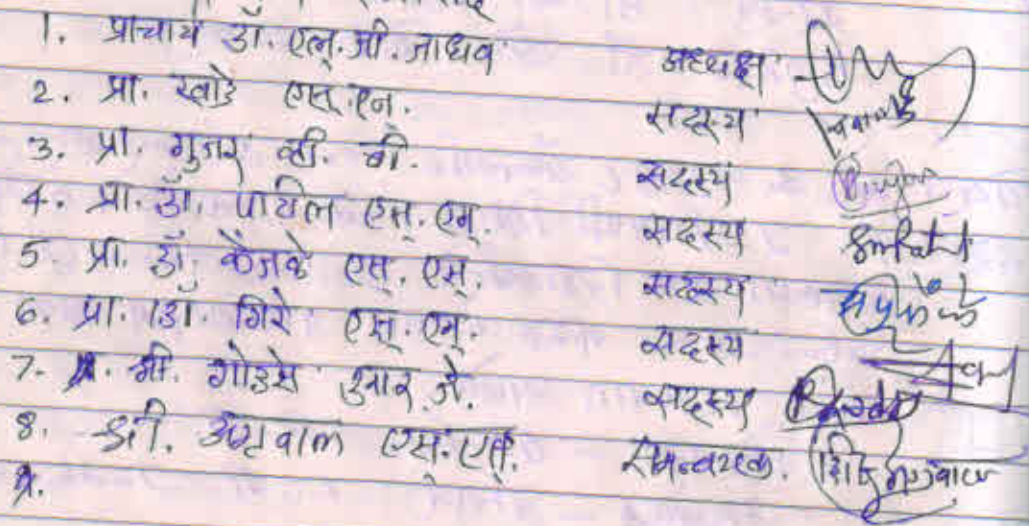 1. प्राचार्य डॉ. एल्. जी. जाधव अध्यक्ष
2. प्रा. खाडे एस्. एन. सदस्य
3. प्रा. गुजर व्ही. बी. सदस्य
4. प्रा. डॉ. पाटील एस्. एम्. सदस्य smpatil
5. प्रा. डॉ. केंजळे एस्. एस्. सदस्य
6. प्रा. डॉ. गिरी एस्. एम्. सदस्य
7. श्री. गोडसे आर. जे. सदस्य
8. श्री. अग्रवाल एस्. एस्. समन्वयक.